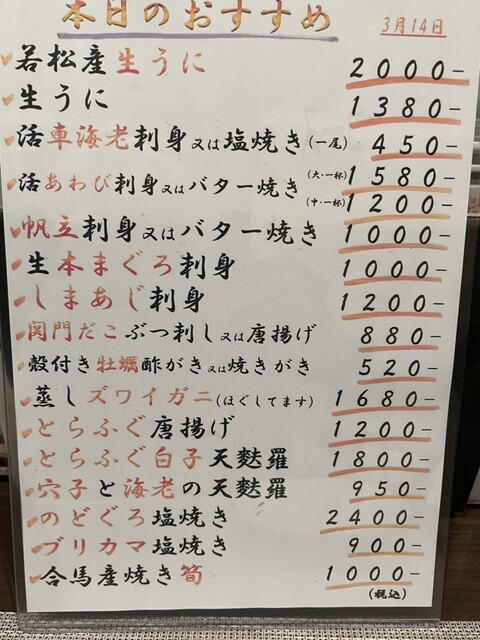 本日のおすすめ 3月14日
若松産生うに 2000-
生うに 1380-
活車海老刺身又は塩焼き(一尾) 450-
活あわび刺身又はバター焼き (大・一杯) 1580-
(中・一杯) 1200-
帆立刺身又はバター焼き 1000-
生本まぐろ刺身 1000-
しまあじ刺身 1200-
関門だこぶつ刺し又は唐揚げ 880-
殻付き牡蠣酢がき又は焼きがき 520-
蒸しズワイガニ(ほぐしてます) 1680-
とらふぐ唐揚げ 1200-
とらふぐ白子天麩羅 1800-
穴子と海老の天麩羅 950-
のどぐろ塩焼き 2400-
ブリカマ塩焼き 900-
合馬産焼き筍 1000-
(税込)